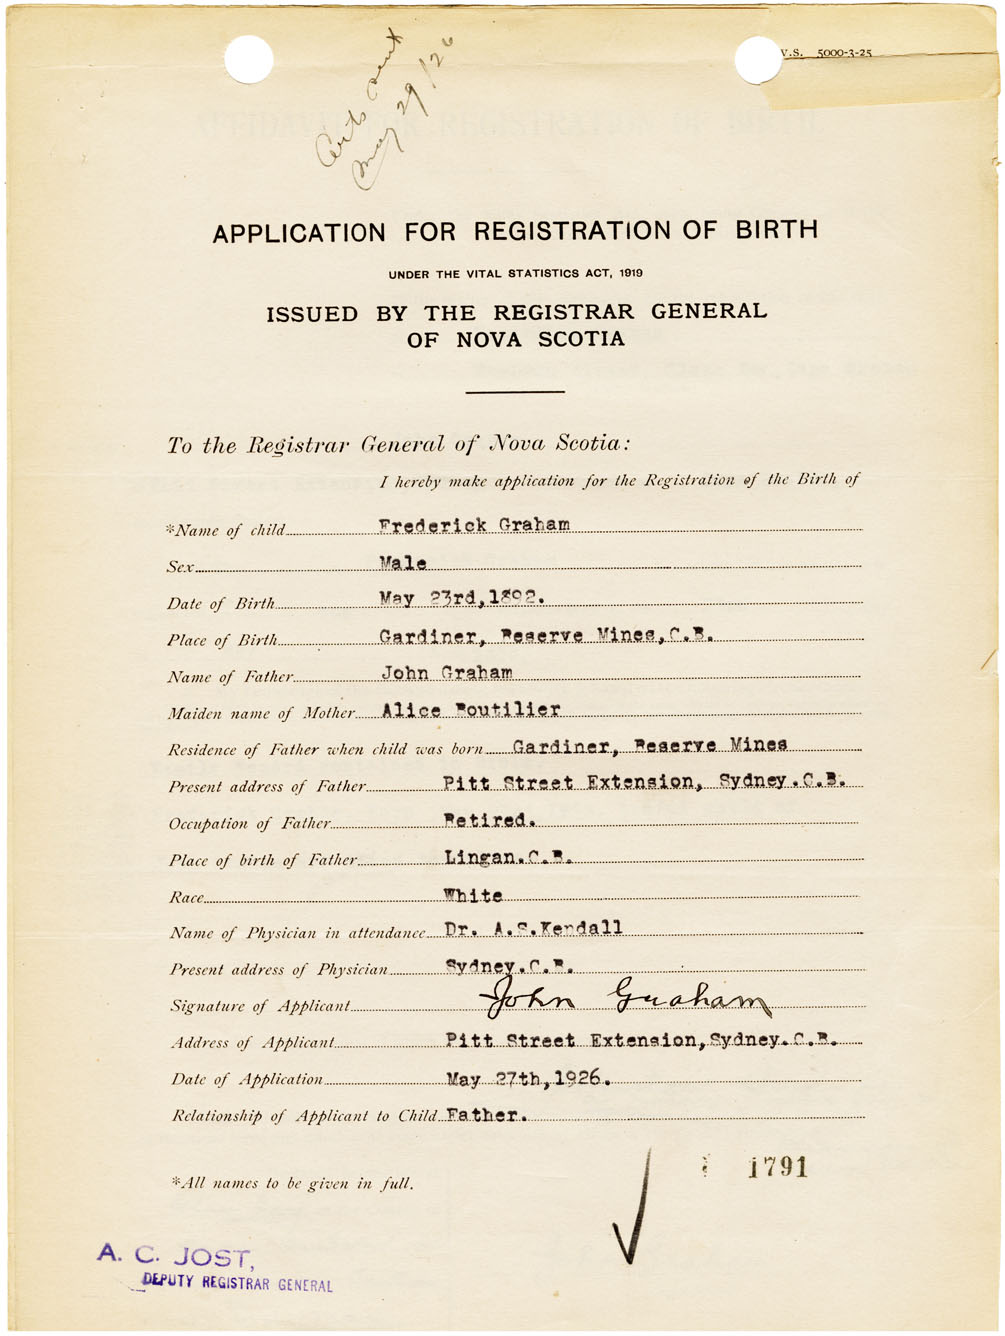 V.S. 5000-3-25
Certs sent
May 29/26
APPLICATION FOR REGISTRATION OF BIRTH
UNDER THE VITAL STATISTICS ACT, 1919
ISSUED BY THE REGISTRAR GENERAL
OF NOVA SCOTIA
To the Registrar General of Nova Scotia:
I hereby make application for the Registration of the Birth of
*Name of child Frederick Graham
Sex Male
Date of Birth May 23rd,1892.
Place of Birth Gardiner, Reserve Mines,C.B.
Name of Father John Graham
Maiden name of Mother Alice Boutilier
Residence of Father when child was born Gardiner, Reserve Mines
Present address of Father Pitt Street Extension, Sydney.C.B.
Occupation of Father Retired.
Place of birth of Father Lingan.C.B.
Race White
Name of Physician in attendance Dr. A.S.Kendall
Present address of Physician Sydney.C.B.
Signature of Applicant John Graham
Address of Applicant Pitt Street Extension,Sydney.C.B.
Date of Application May 27th,1926.
Relationship of Applicant to Child Father.
1791
*All names to be given in full.
A. C. JOST,
DEPUTY REGISTRAR GENERAL